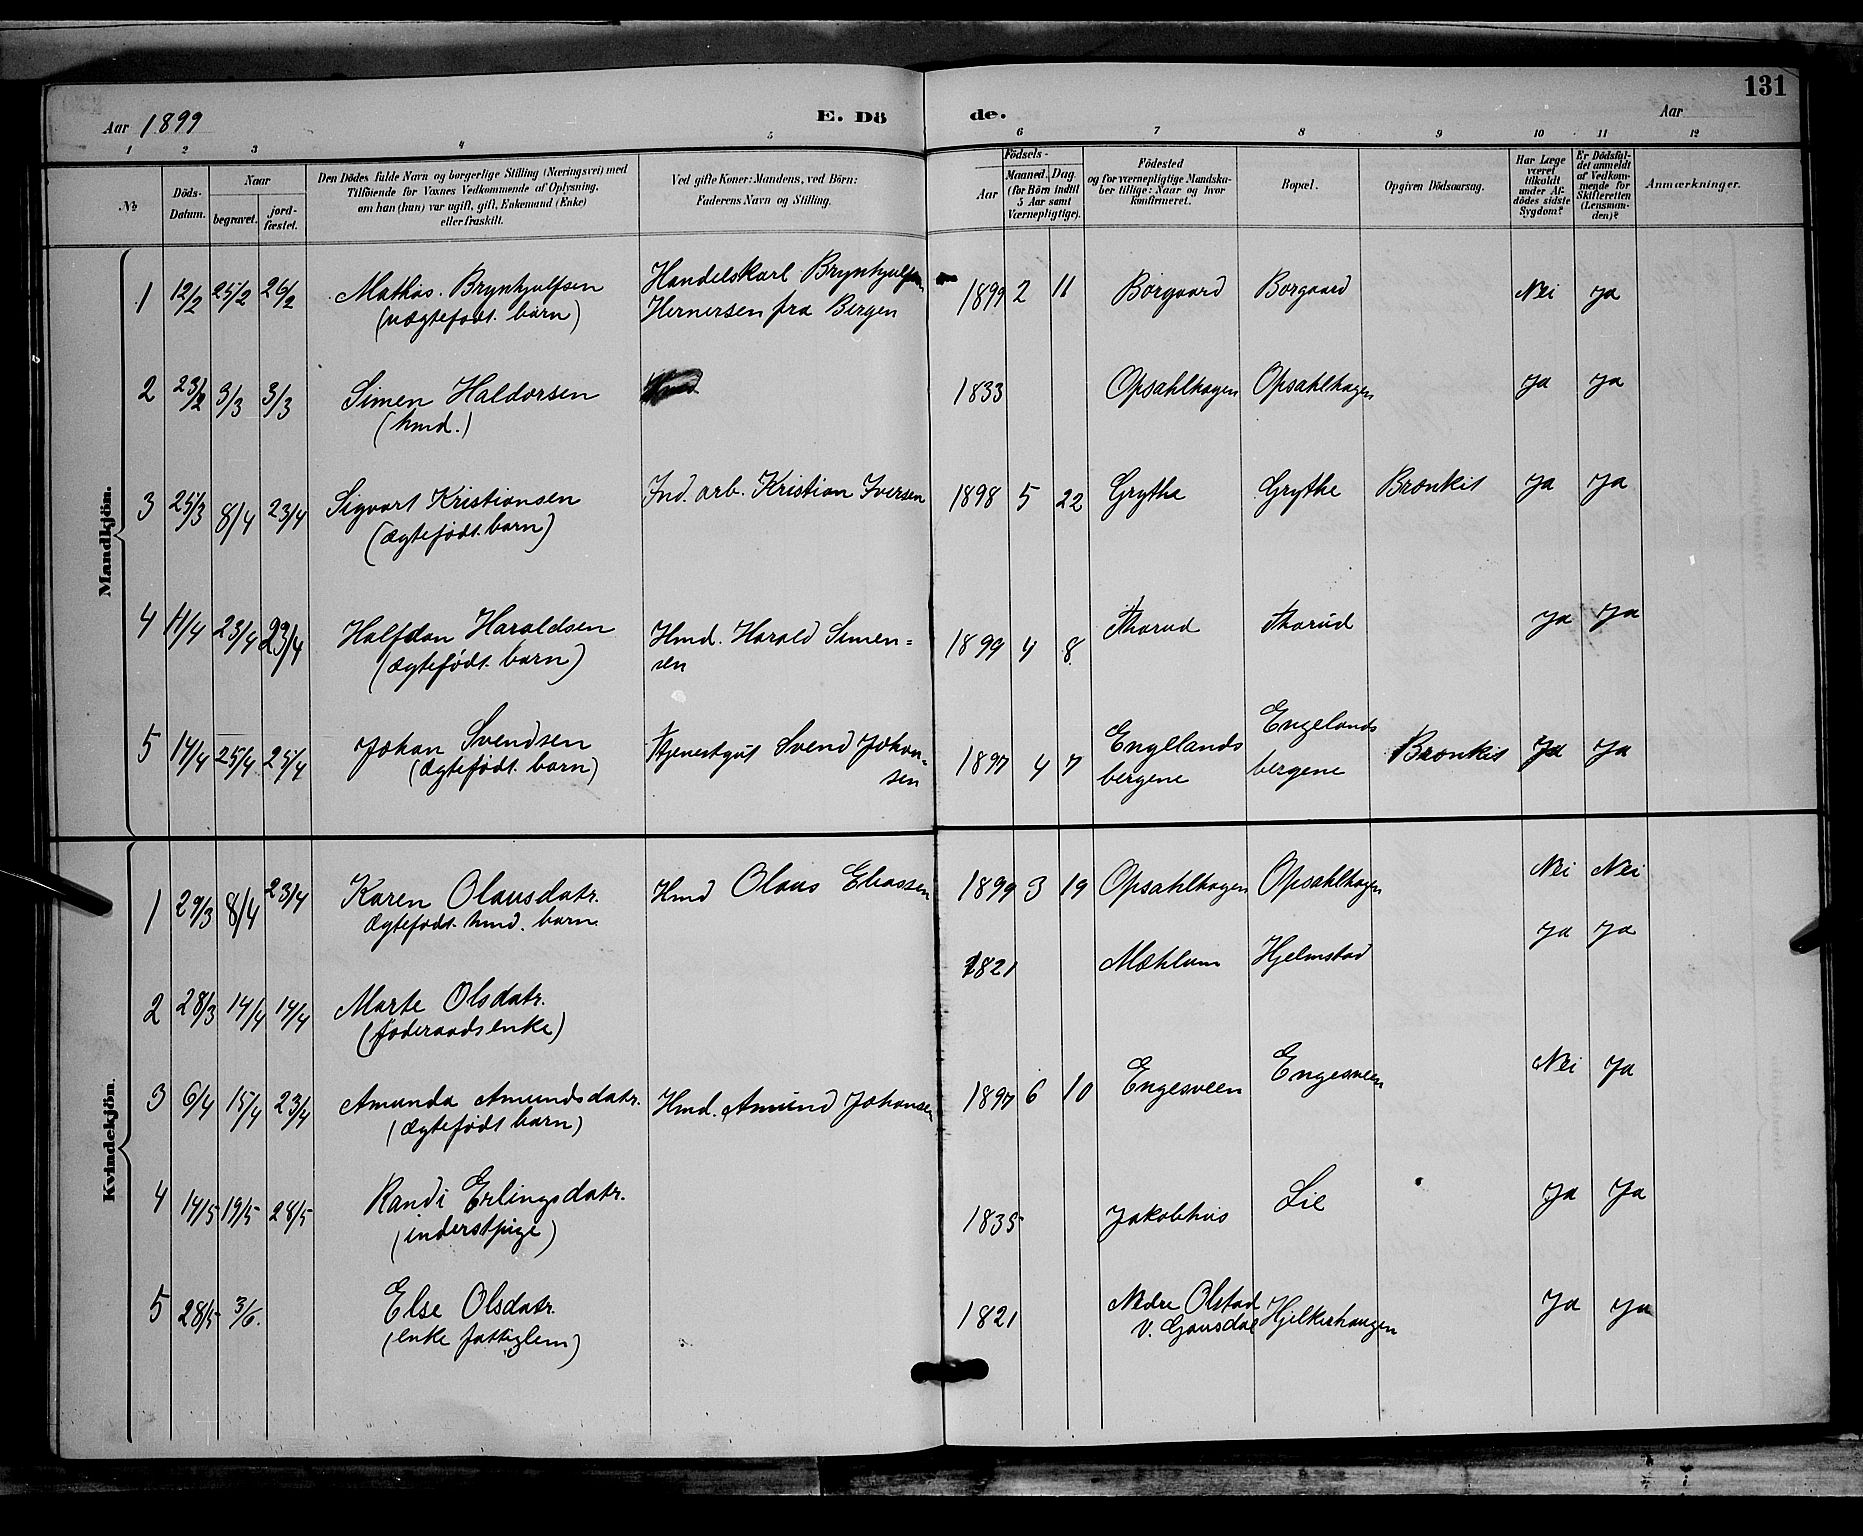 131
Aar 1899 E. Dö de. Aar
1 2 3 4 5 6 7 8 9 10 11 12
№
Döds-
Datum.
Naar
begravet.
jord-
fæstet.
Den Dödes fulde Navn og borgerlige Stilling (Næringsvei) med
Tilföiende for Voxnes Vedkommende af Oplysning,
om han (hun) var ugift, gift, Enkemand (Enke)
eller fraskilt.
Ved gifte Koner: Mandens, ved Börn:
Faderens Navn og Stilling.
Födsels-
Aar
Maaned. Dag.
(for Börn indtil
5 Aar samt
Værnepligtige).
Födested
og for værnepligtige Mandska-
ber tillige: Naar og hvor
konfirmeret.
Bopæl.
Opgiven Dödsaarsag.
Har Læge
været
tilkaldt
under Af-
dödes sidste
Sygdom?
Er Dödsfal-
det anmeldt
af Vedkom-
mende for
Skifteretten
(Lensman-
den)?
Anmærkninger.
Mandkjön.
1 12/2 25/2 26/2 Mathias Brynhjulfsen Handelskarl Brynhjulf 1899 2 11 Borgaard Borgaard Nei Ja
(uægtefødt. barn) Hernersen fra Bergen
2 23/2 3/3 3/3 Simen Haldorsen 1833 Opsahlhagen Opsahlhagen Ja Ja
(hmd.)
3 25/3 8/4 23/4 Sigvart Kristiansen Ind. arb. Kristian Iversen 1898 5 22 Grythe Grythe Bronkit Ja Ja
(ægtefødt. barn)
4 11/4 23/4 23/4 Halfdan Haraldsen Hmd. Harald Simen= 1899 4 8 Thorud Thorud Ja Ja
(ægtefødt. barn) sen
5 14/4 25/4 25/4 Johan Svendsen Tjenestgut Svend Johan= 1897 4 7 Engelands Engelands Bronkit Ja Ja
(ægtefødt. barn) sen bergene bergene
Kvindekjön.
1 29/3 8/4 23/4 Karen Olausdatr. Hmd Olaus Eliassen 1899 3 19 Opsahlhagen Opsahlhagen Nei Nei
ægtefødt. hmd. barn.
2 28/3 14/4 14/4 Marte Olsdatr. 1821 Mæhlum Hjelmstad Ja Ja
(føderaadsenke)
3 6/4 15/4 23/4 Amunda Amundsdatr. Hmd. Amund Johansen 1897 6 10 Engesveen Engesveen Nei Ja
(ægtefødt barn)
4 14/5 19/5 28/5 Randi Erlingsdatr. 1835 Jakobhus Lie Ja Ja
(inderstpige)
5 28/5 3/6. Else Olsdatr. 1821 Nedre Olstad Hjelkerhaugen Ja Ja
(enke fattiglem) V. Gausdal